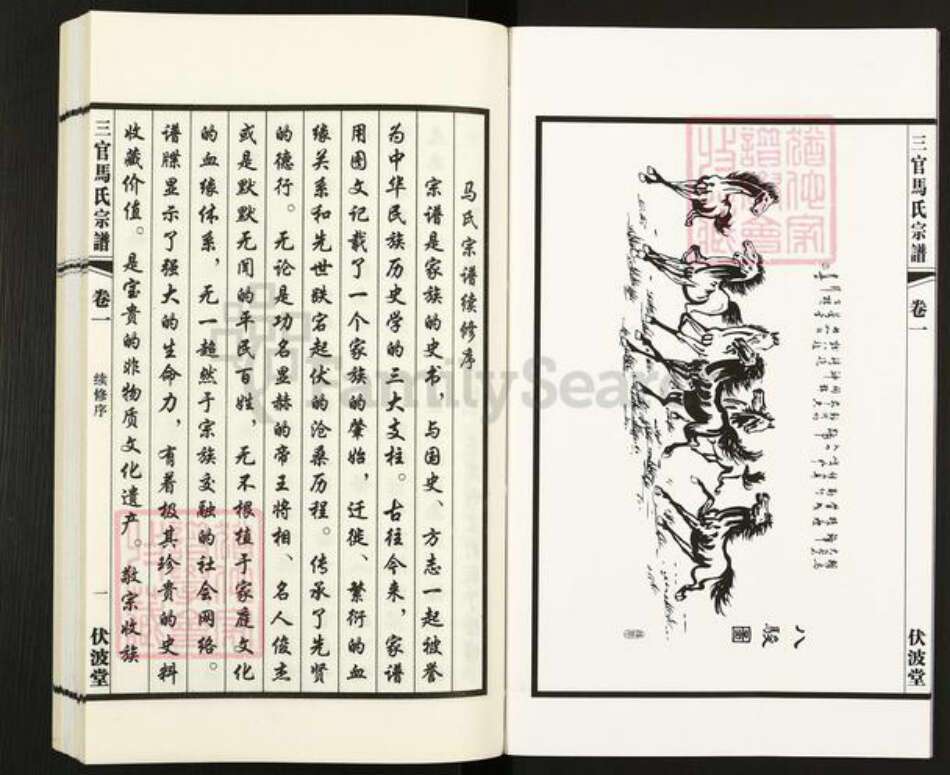 三官馬氏宗譜
卷一
伏波堂
八
駿
圖
马氏宗谱续修序
宗谱是家族的史书，与国史、方志一起被誉
为中华民族历史学的三大支柱。古往今来，家谱
用图文记载了一个家族的肇始，迁徙、繁衍的血
缘关系和先世跌宕起伏的沧桑历程。传承了先贤
的德行。无论是功名显赫的帝王将相、名人俊杰
或是默默无闻的平民百姓，无不根植于家庭文化
的血缘体系，无一超然于宗族交融的社会网络。
谱牒显示了强大的生命力，有着极其珍贵的史料
收藏价值。是宝贵的非物质文化遗产。敬宗收族
三官馬氏宗譜
卷一
续修序
一
伏波堂
FamilySearch